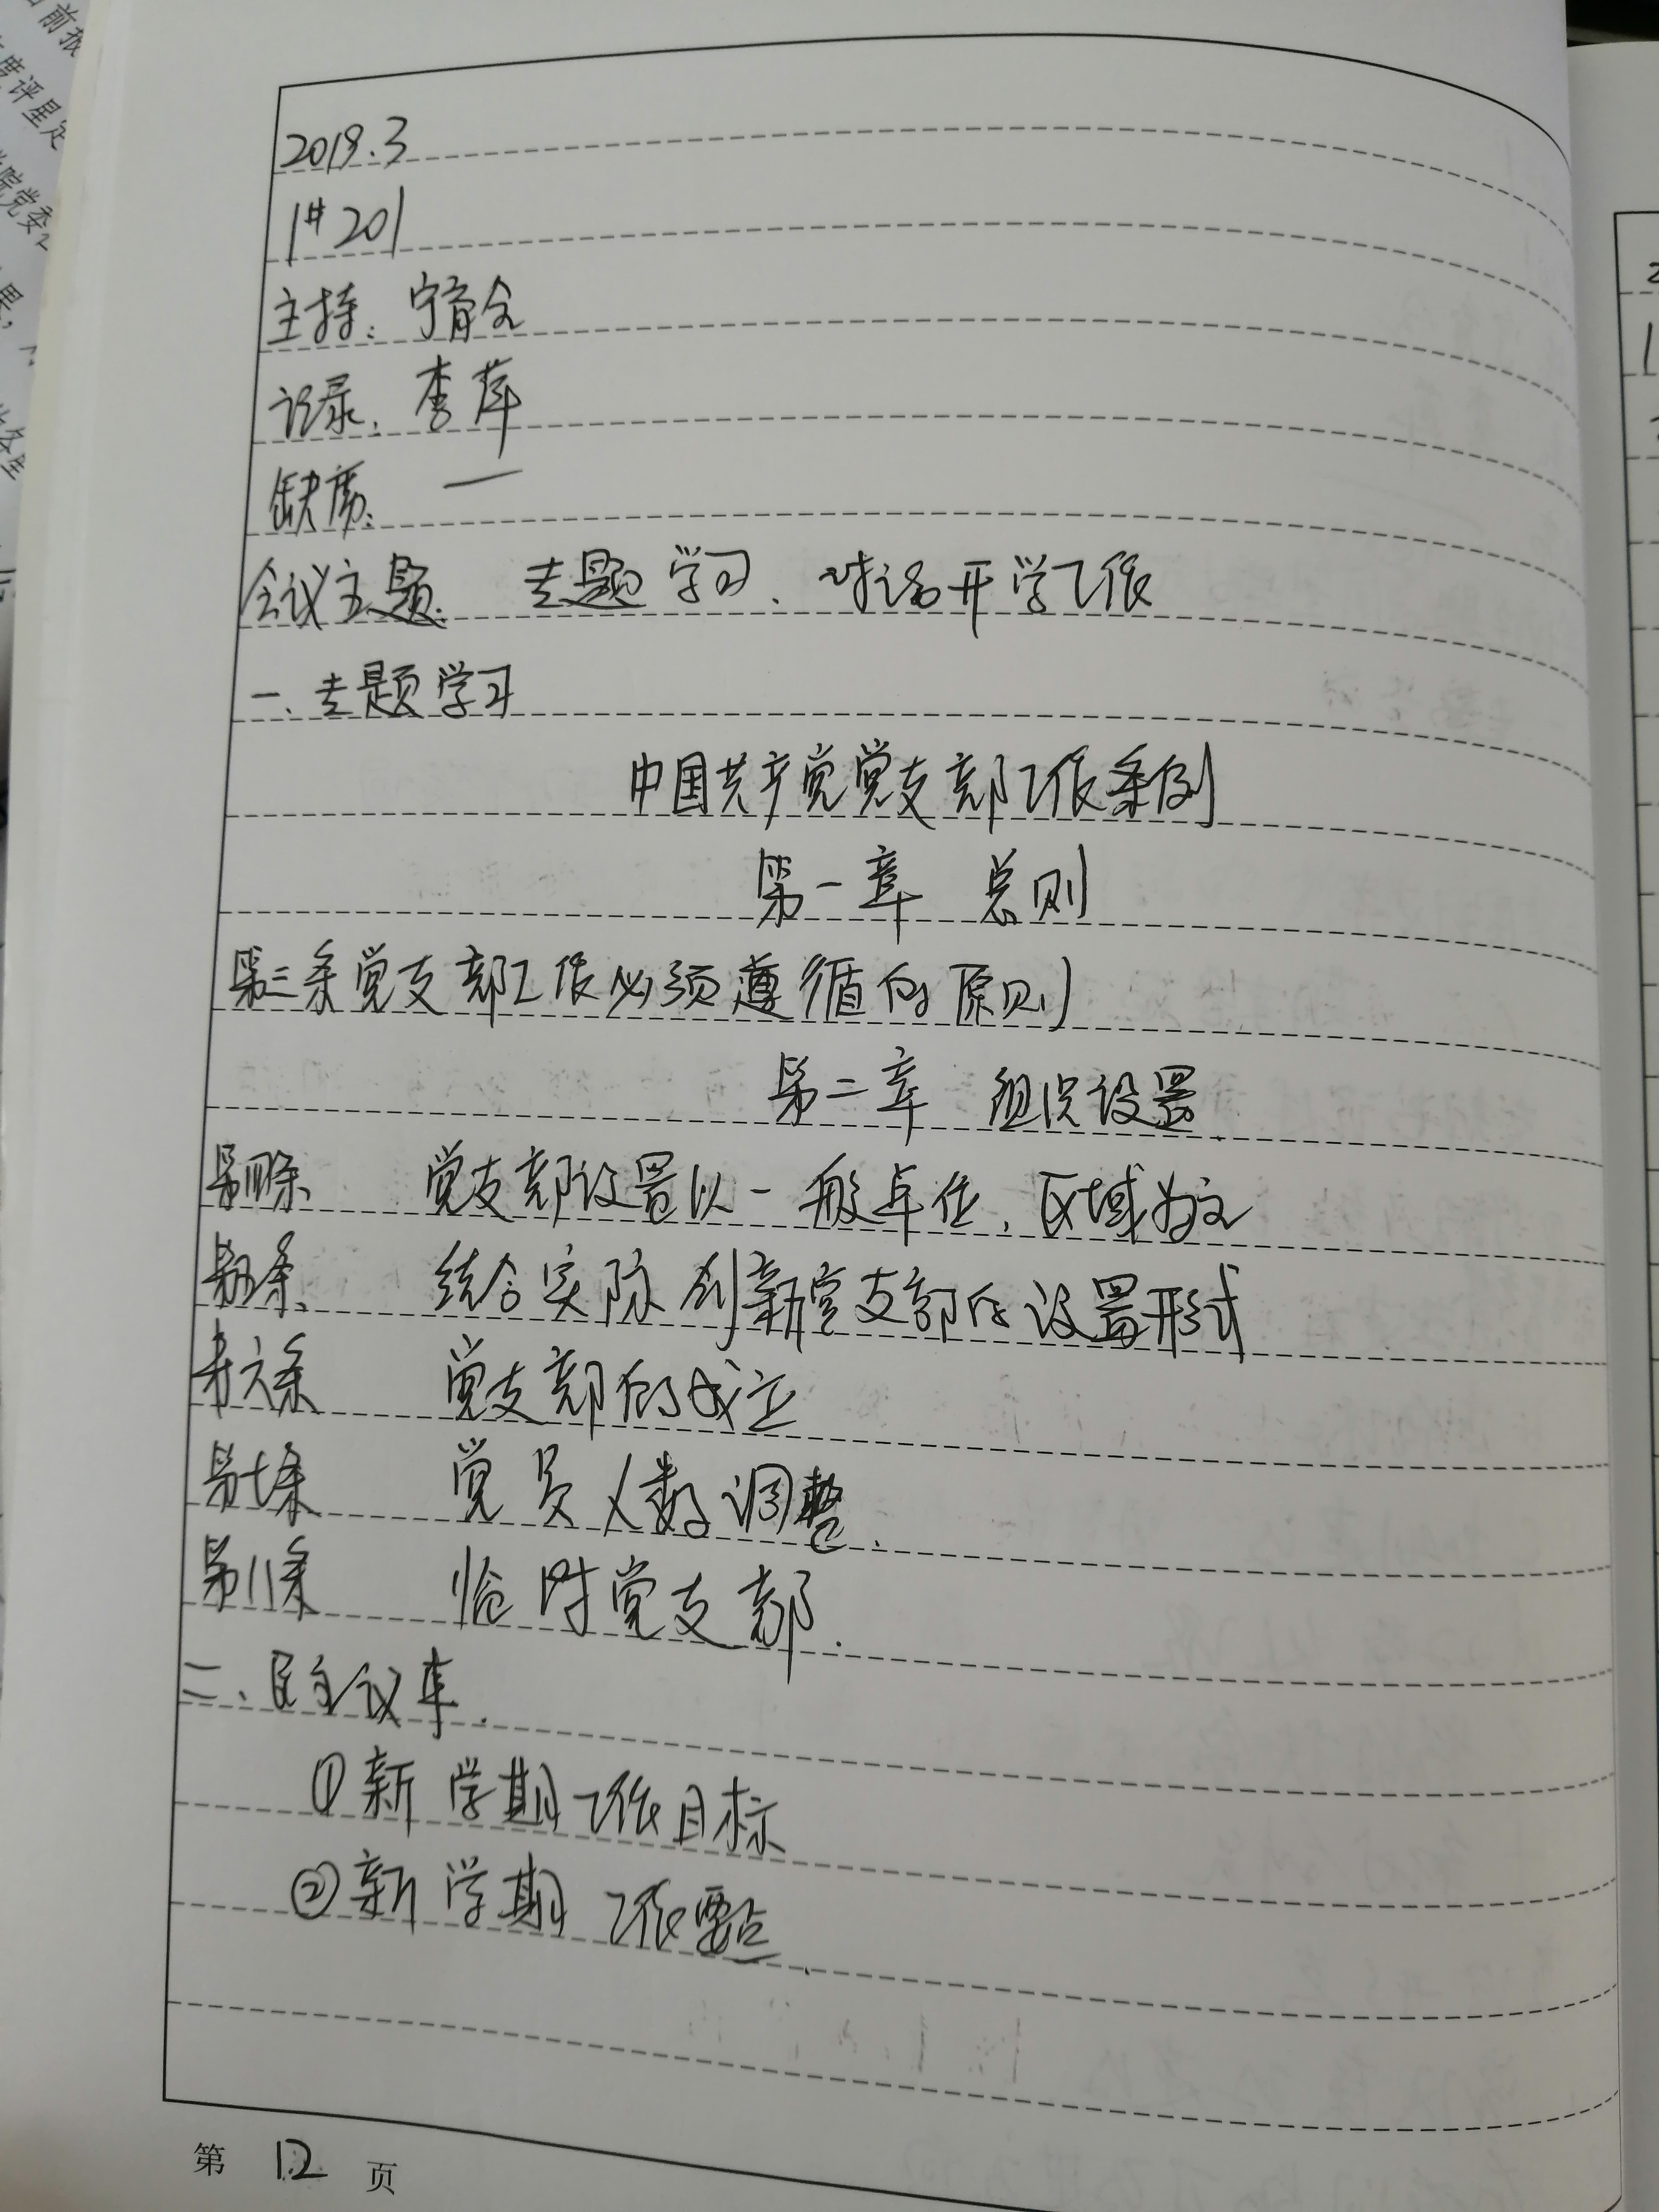 2019.3
1#201
主持：宁育仝
记录：李萍
缺席：一
会议主题： 专题学习、对话开学工作
一、专题学习
中国共产党党支部工作条例
第一章 总则
第三条党支部工作必须遵循的原则
第二章 组织设置
第四条、 党支部设置以一般单位、区域为主
第五条、 结合实际创新党支部的设置形式
第六条 党支部的成立
第七条 党员人数调整.
第八条 临时党支部.
二、民主议事.
①新学期工作目标
②新学期工作要点.
第 12 页